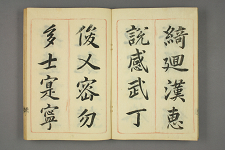 綺廻漢惠
說感武丁
俊乂密勿
多士寔寧